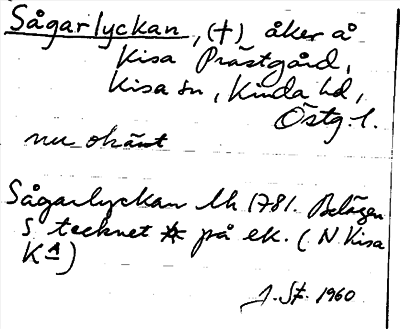 Sågarlyckan, (+) åker å
Kisa Prästgård,
Kisa sn, Kinda hd,
Östg. l.
nu okänt
Sågarlyckan lh 1781. Belägen
S tecknet * på ek. (N Kisa
KA)
J. St. 1960